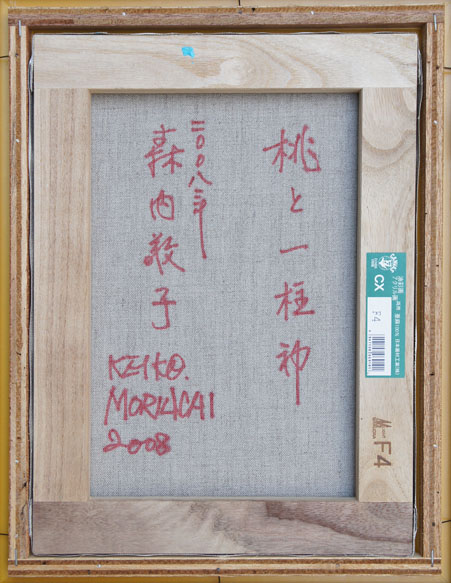 桃と一柱神
二〇〇八年
森内敬子
KEIKO.
MORIUCAI
2008
CX
F4
F4